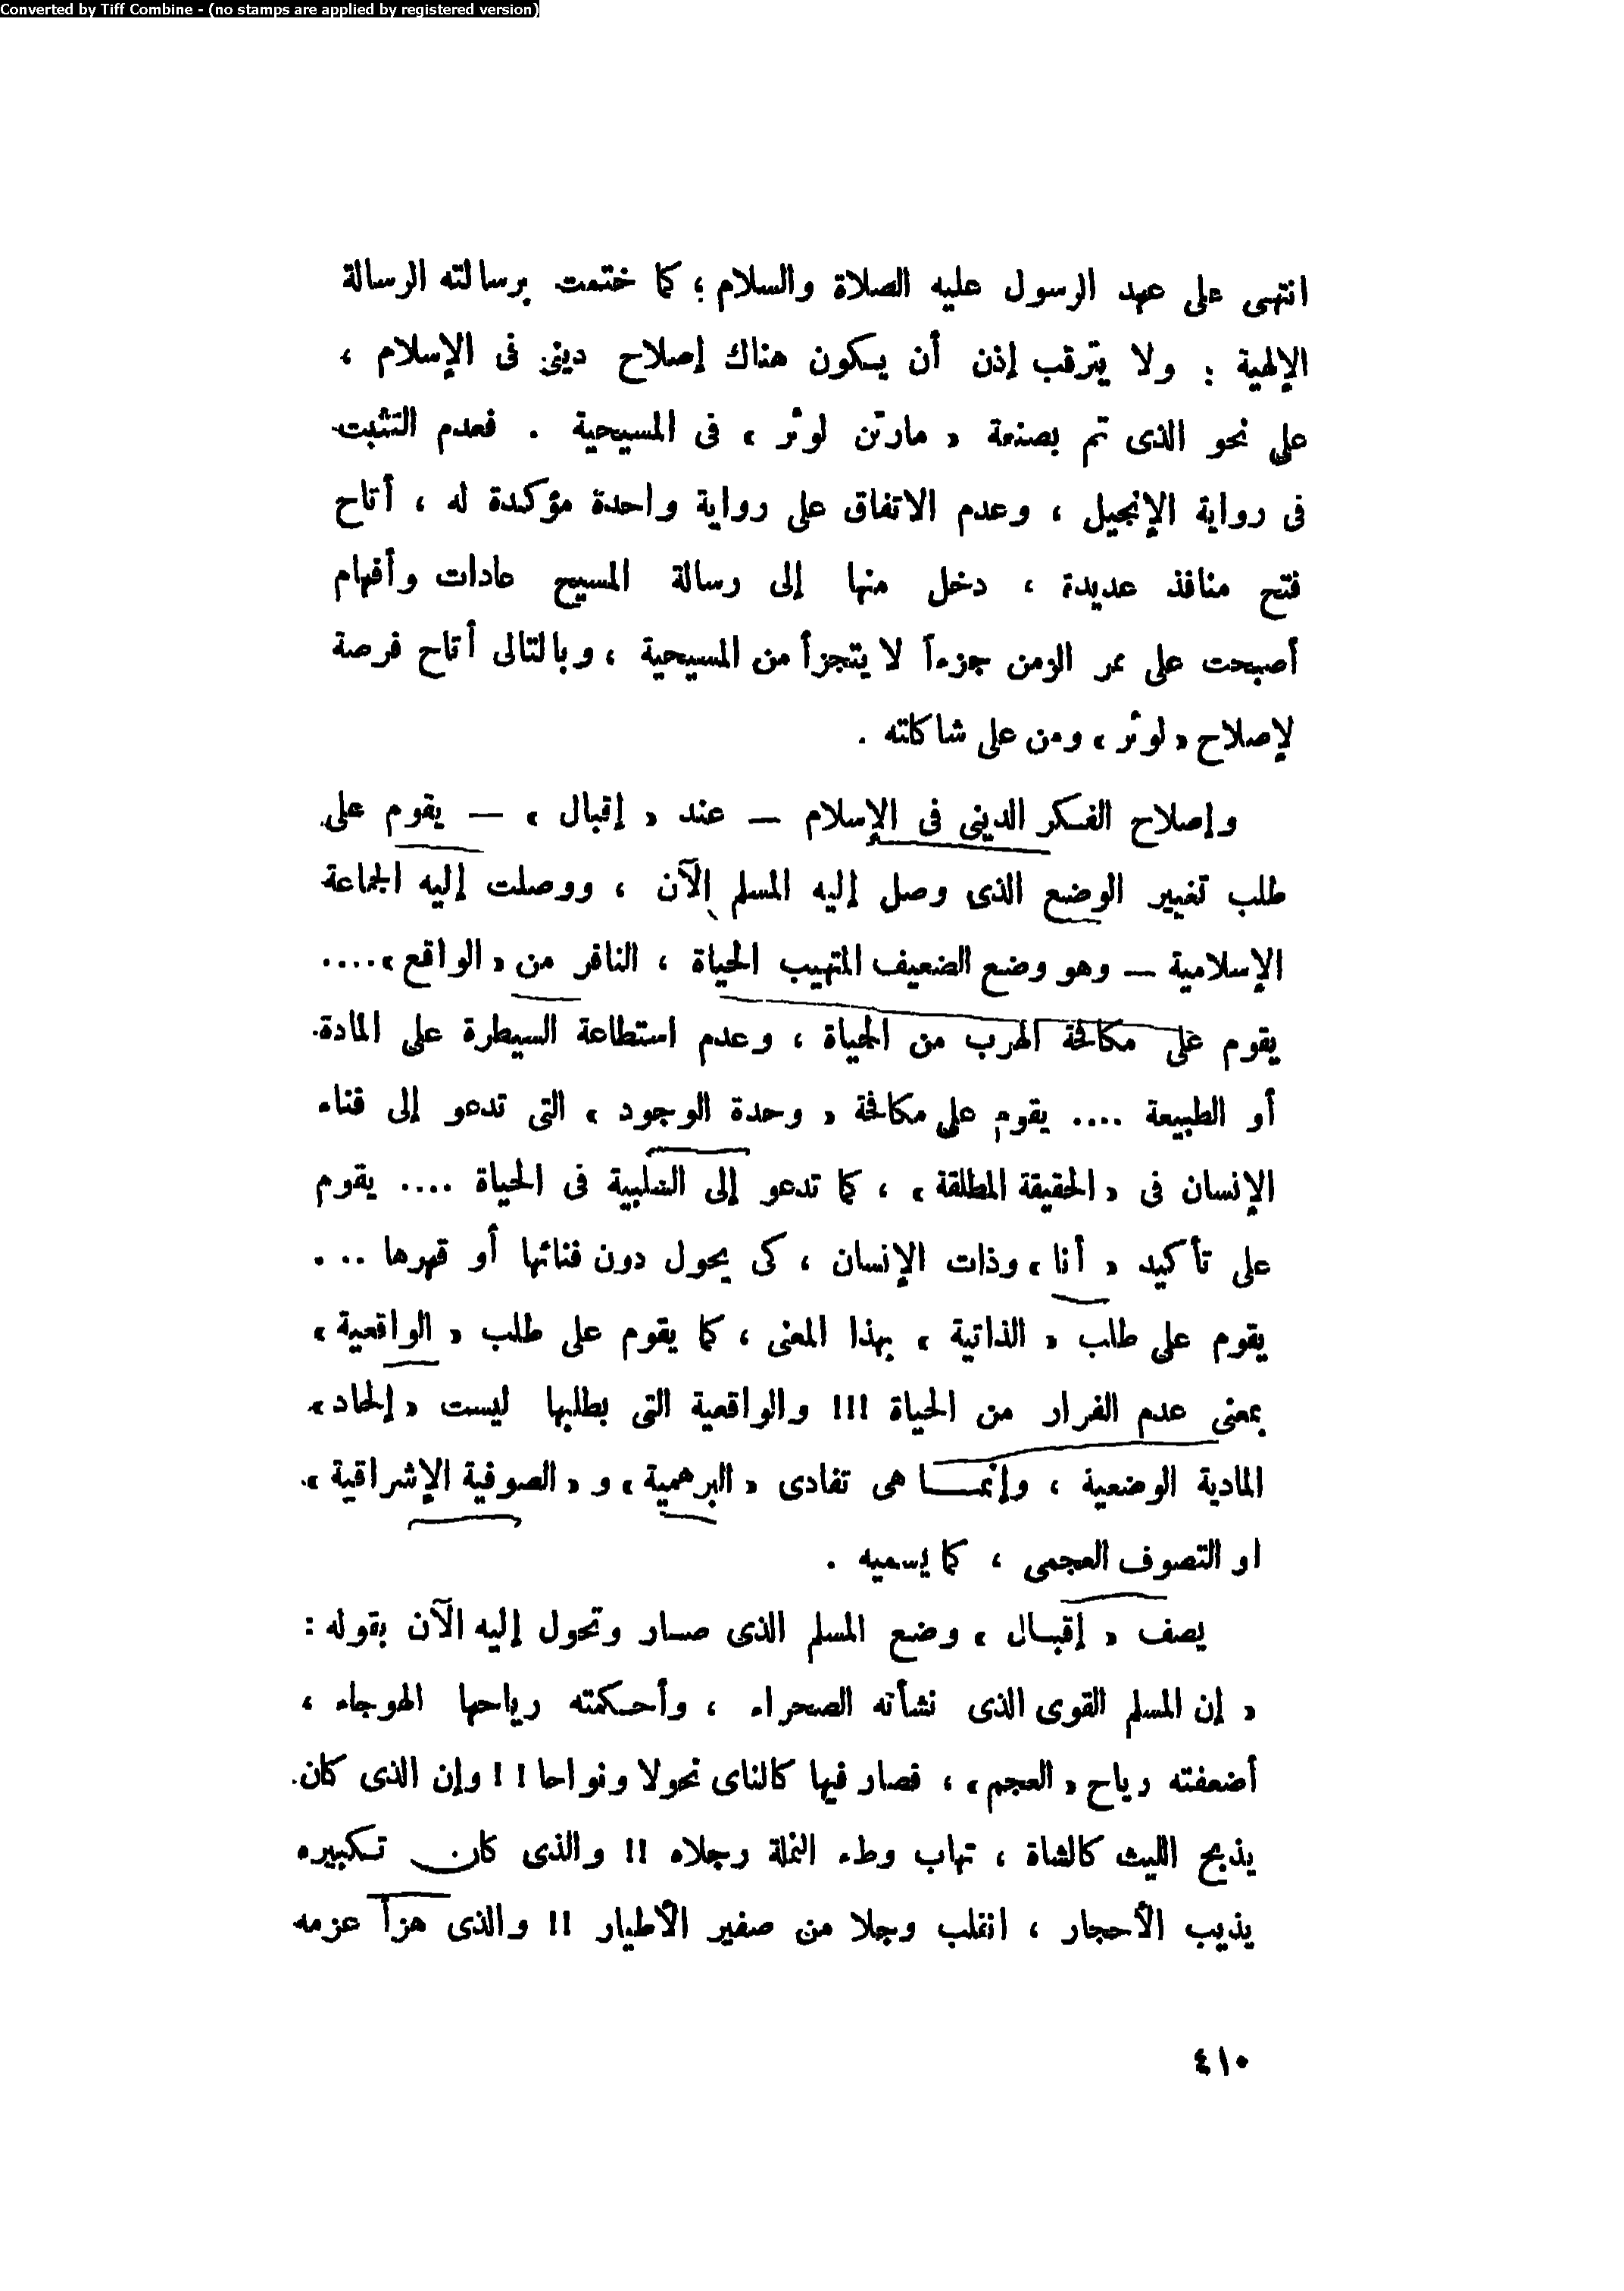 Converted by Tiff Combine - (no stamps are applied by registered version)
انتهى على عهد الرسول عليه الصلاة والسلام ؛ كما ختمت برسالته الرسالة
الإلهية : ولا يترقب إذن أن يكون هناك إصلاح دينى فى الإسلام ،
على نحو الذى تم بصنعة « مارتن لوثر » فى المسيحية . فعدم التثبت
فى رواية الإنجيل ، وعدم الاتفاق على رواية واحدة مؤكدة له ، أتاح
فتح منافذ عديدة ، دخل منها إلى رسالة المسيح عادات وأفهام
أصبحت على ممر الزمن جزءاً لا يتجزأ من المسيحية ، وبالتالى أتاح فرصة
لإصلاح « لوثر » ومن على شاكلته .
وإصلاح الفكر الدينى فى الإسلام — عند « إقبال » — يقوم على
طلب تغيير الوضع الذى وصل إليه المسلم الآن ، ووصلت إليه الجماعة
الإسلامية — وهو وضع الضعيف المتهيب الحياة ، النافر من « الواقع » ....
يقوم على مكافحة الهرب من الحياة ، وعدم استطاعة السيطرة على المادة
أو الطبيعة .... يقوم على مكافحة « وحدة الوجود » التى تدعو إلى فناء
الإنسان فى « الحقيقة المطلقة » ، كما تدعو إلى السلبية فى الحياة .... يقوم
على تأكيد « أنا » وذات الإنسان ، كى يحول دون فنائها أو قهرها ...
يقوم على طلب « الذاتية » بهذا المعنى ، كما يقوم على طلب « الواقعية »
بمعنى عدم الفرار من الحياة !!! والواقعية التى يطلبها ليست « إلحاد »
المادية الوضعية ، وإنمـا هى تفادى « البرهمية » و « الصوفية الإشراقية »
او التصوف العجمى ، كما يسميه .
يصف « إقبـال » وضع المسلم الذى صـار وتحول إليه الآن بقوله :
« إن المسلم القوى الذى نشأته الصحراء ، وأحكمته رياحها الهوجاء ،
أضعفته رياح « العجم » ، فصار فيها كالناى نحولا ونواحا !! وإن الذى كان
يذبح الليث كالشاة ، تهاب وطء النملة رجلاه !! والذى كان تكبيره
يذيب الأحجار ، انقلب وجلا من صفير الأطيار !! والذى هزأ عزمه
٤١٠